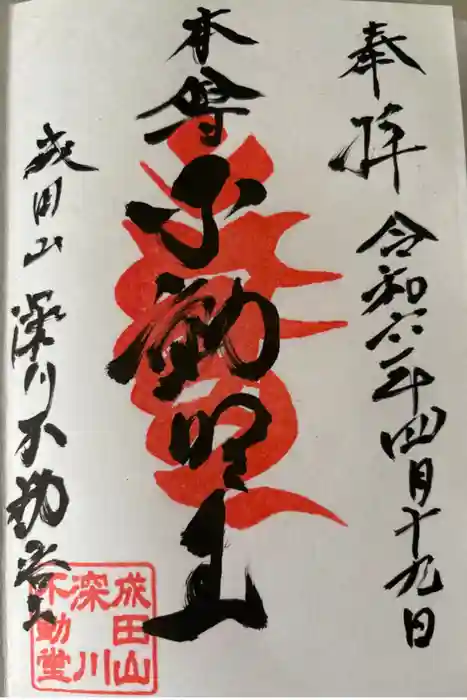 奉拝
令和六年四月十九日
本尊
不動明王
成田山 深川不動堂
成田山
深川
不動堂